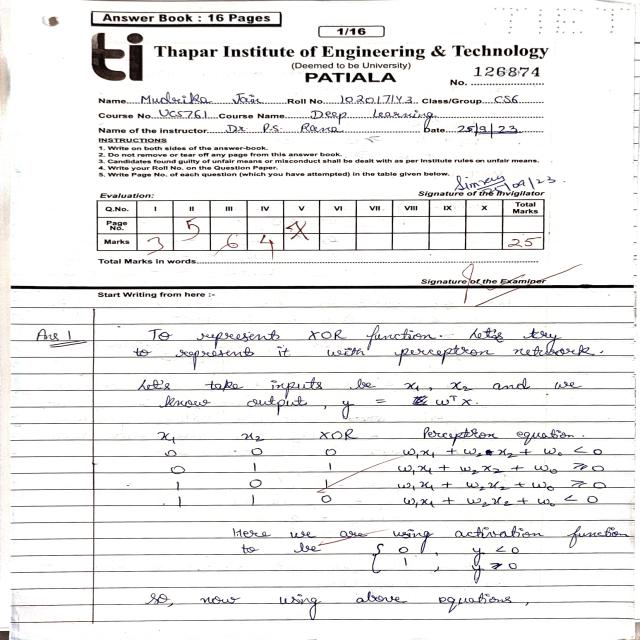 TIET
Answer Book : 16 Pages
1/16
ti Thapar Institute of Engineering & Technology
(Deemed to be University)
PATIALA
No. 126874
Name Mudrika Jain Roll No. 102017143 Class/Group CS6
Course No. UCS761 Course Name Deep Learning
Name of the instructor Dr. P.S. Rana Date 25/9/23
INSTRUCTIONS
1. Write on both sides of the answer-book.
2. Do not remove or tear off any page from this answer book.
3. Candidates found guilty of unfair means or misconduct shall be dealt with as per Institute rules on unfair means.
4. Write your Roll No. on the Question Paper.
5. Write Page No. of each question (which you have attempted) in the table given below.
Evaluation:
Signature of the Invigilator
Q.No. I II III IV V VI VII VIII IX X Total Marks
Page No.
Marks 3 5 6 4 25
Total Marks in words
Signature of the Examiner
Start Writing from here :-
Ans 1 To represents XOR function. Let's try
to represent it with perceptron network.
Let's take inputs be x₁, x₂ and we
know output, y = wᵀx.
x₁ x₂ XOR Perceptron equation.
0 0 0 w₁x₁ + w₂x₂ + w₀ < 0
0 1 1 w₁x₁ + w₂x₂ + w₀ ≥ 0
1 0 1 w₁x₁ + w₂x₂ + w₀ ≥ 0
1 1 0 w₁x₁ + w₂x₂ + w₀ < 0
Here we are using activation function
to be { 0 , y < 0
{ 1 , y ≥ 0
So, now using above equations,